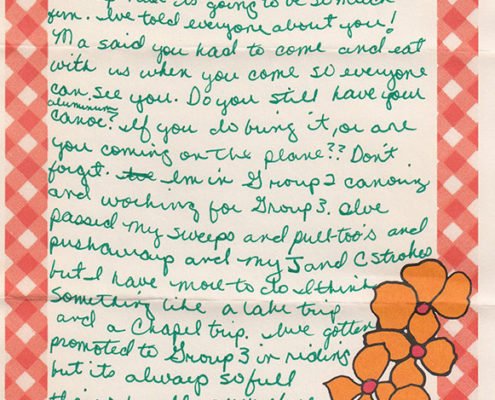 is going to be so much
fun. I've told everyone about you!
Ma said you had to come and eat
with us when you come so everyone
can see you. Do you still have your
aluminum
canoe? If you do bring it, or are
you coming on the plane?? Don't
forget. I'm in Group 2 canoeing
and working for Group 3. I've
passed my sweeps and pull-too's and
pushaways and my J and C strokes
but I have more to do I think
something like a lake trip
and a Chapel trip. I've gotten
promoted to Group 3 in riding
but its always so full